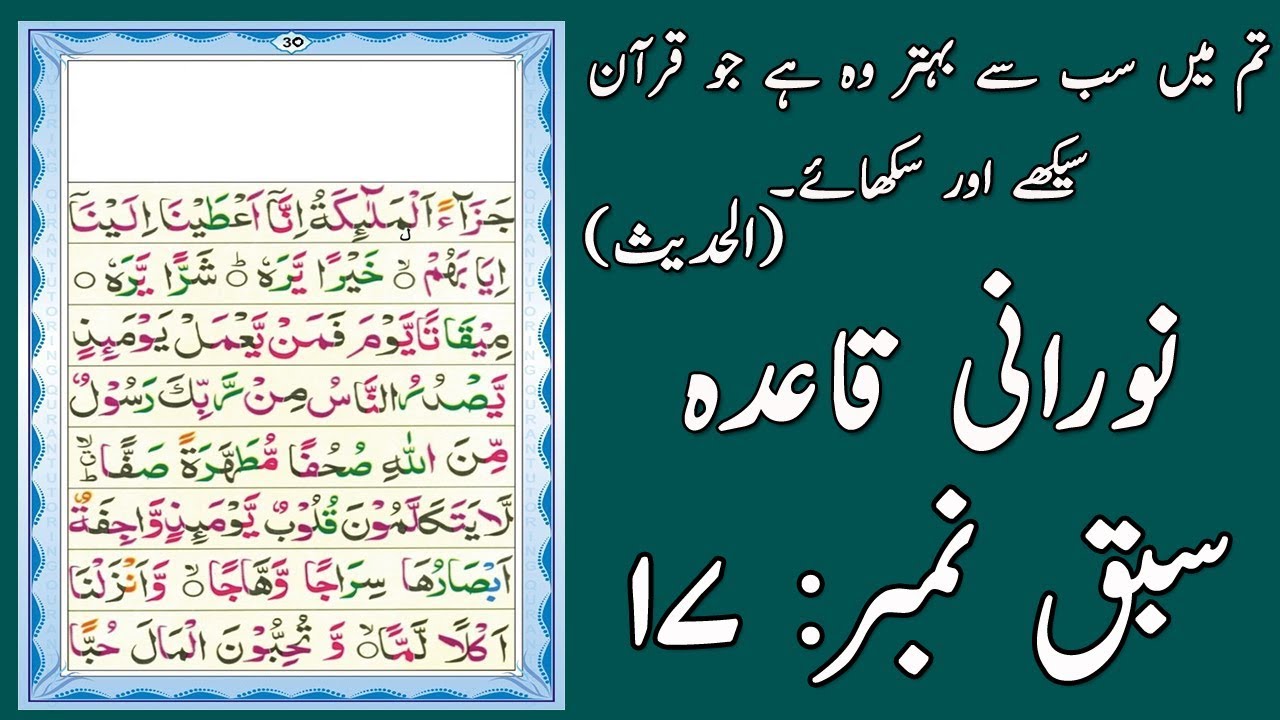 30
جَزَآءً اَلْمَلٰٓئِكَةُ اِنَّآ اَعْطَيْنَا اِلَيْنَآ
اِيَابَهُمْ ۙ خَيْرًا يَّرَهٗ ؕ شَرًّا يَّرَهٗ
مِيْقَاتًا يَّوْمَ فَمَنْ يَّعْمَلْ يَوْمَئِذٍ
يَّصْدُرُ النَّاسُ مِنْ رَّبِّكَ رَسُوْلٌ
مِّنَ اللّٰهِ صُحُفًا مُّطَهَّرَةً صَفًّا
لَّا يَتَكَلَّمُوْنَ قُلُوْبٌ يَّوْمَئِذٍ وَّاجِفَةٌ
اَبْصَارُهَا سِرَاجًا وَّهَّاجًا ۙ وَّاَنْزَلْنَا
اَكْلًا لَّمًّا ۙ وَّ تُحِبُّوْنَ الْمَالَ حُبًّا
QURAN TUTORING
تم میں سب سے بہتر وہ ہے جو قرآن
سیکھے اور سکھائے۔
(الحدیث)
نورانی قاعدہ
سبق نمبر: ۱۷